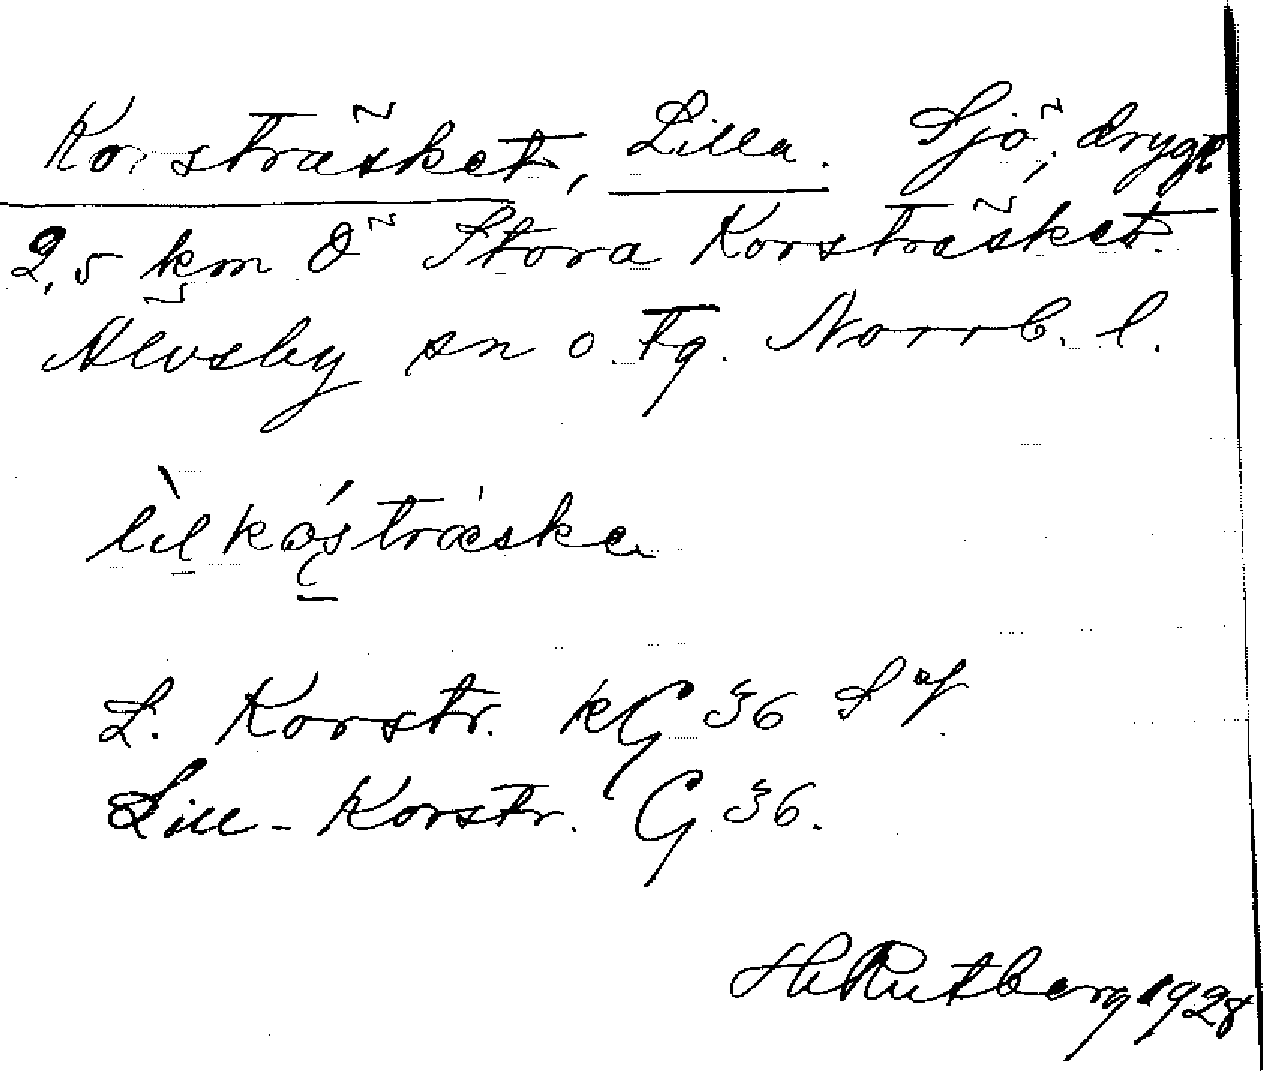 Korsträsket, Lilla. Sjö, drygt
2,5 km Ö Stora Korsträsket.
Älvsby sn o. tg. Norrb. l.
lìlkǻsträske
L. Korstr. KG 36 SV.
Lill-Korstr. G 36.
H Rutberg 1928